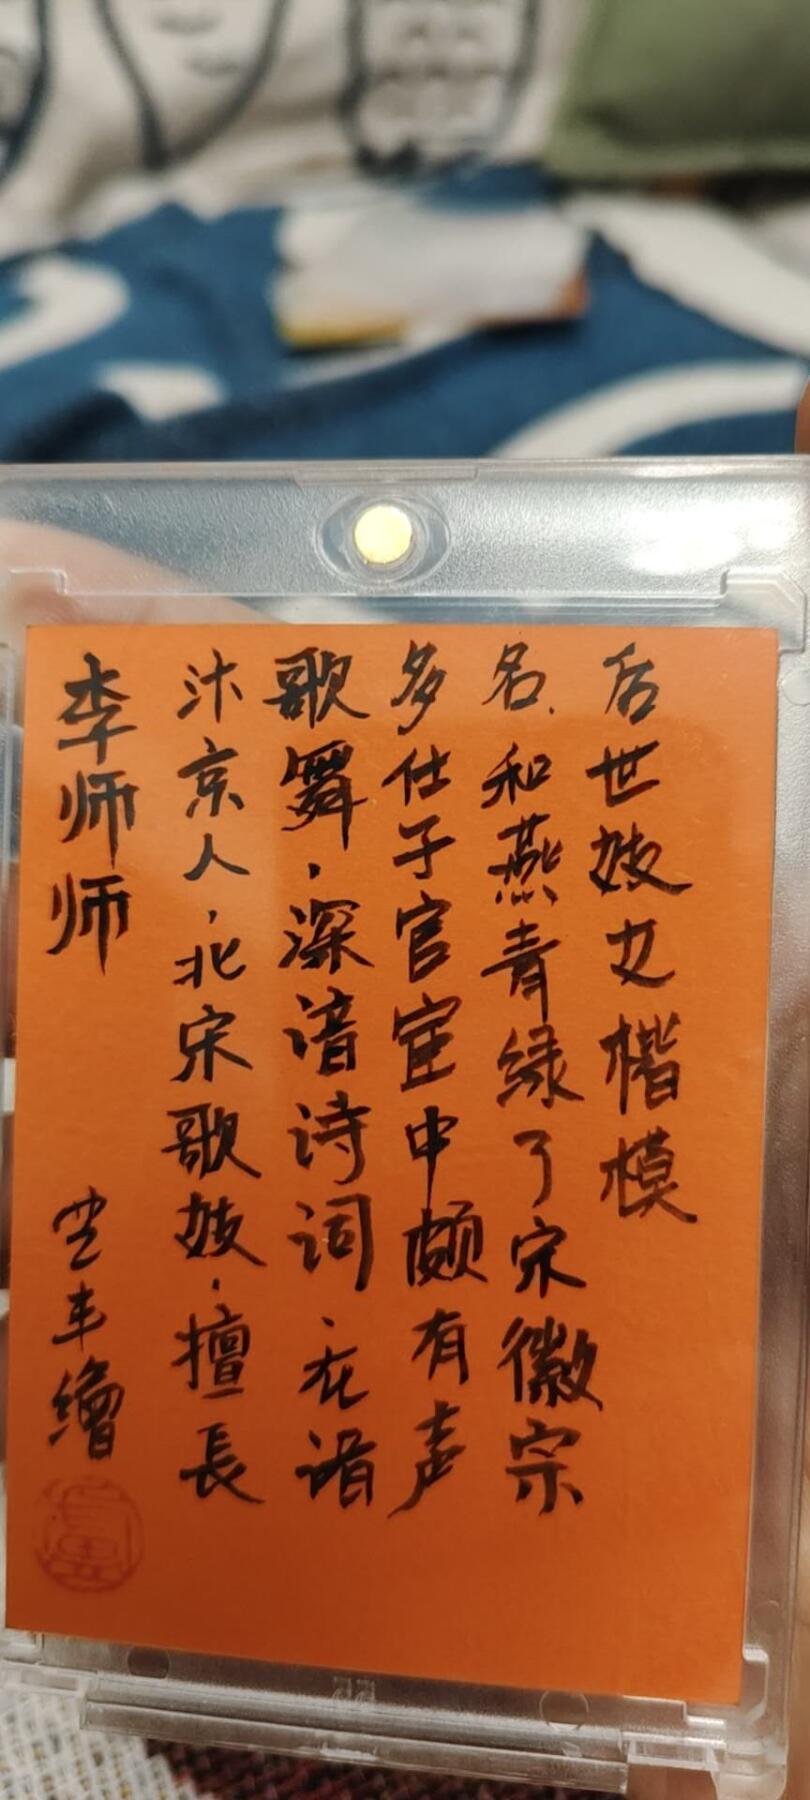 李师师
汴京人，北宋歌妓，擅長
歌舞，深谙诗词，在诸
多仕子官宦中颇有声
名，和燕青绿了宋徽宗
后世妓女楷模
丰繪